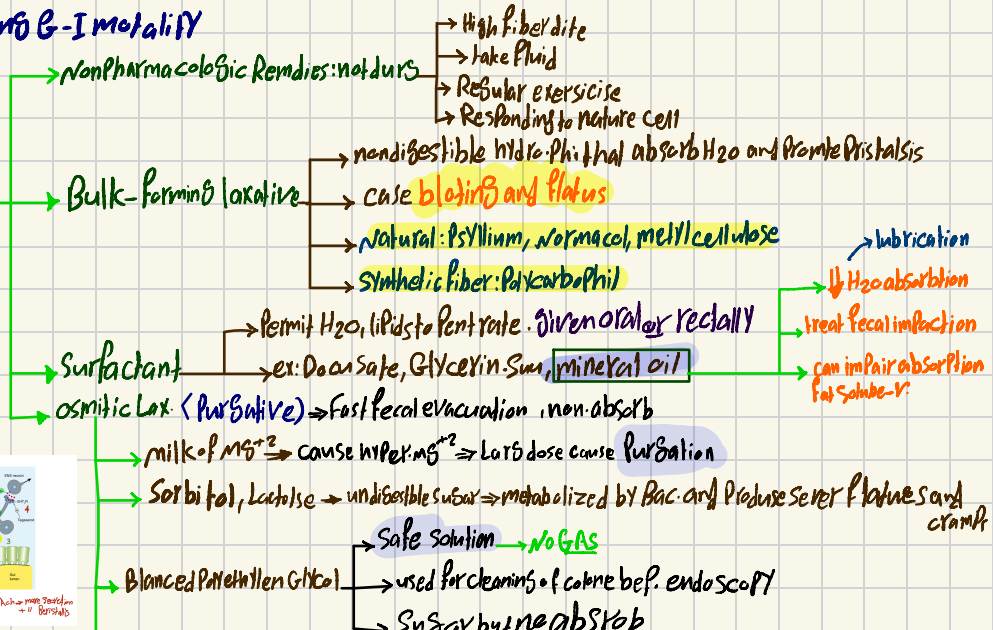 ng G-I motality
Nonpharmacologic Remdies: not durs
High fiber dite
take fluid
Regular exersicise
Responding to nature cell
Bulk-forming laxative
nondigestible hydro-phithal absorb H2O and Promte Pristalsis
case bloting and flatus
Natural: Psyllium, Normacol, metylcellulose
synthetic fiber: Polycarbophil
Surfactant
Permit H2O, lipids to Pentrate. given oral or rectally
ex: Docusate, Glycerin. Sup, mineral oil
lubrication
↓ H2O absorbtion
treat fecal impaction
can impair absorption
fat soluble-v.
osmitic Lax. (Purgative) ⇒ Fast fecal evacuation, non. absorb
milk of Mg+2 → cause hyper.mg+2 ⇒ Lars dose cause Pursation
Sorbitol, Lactolse → undigestible sugar ⇒ metabolized by Bac. and Produse sever flatues and
cramps
Blanced Polyethylen Glycol
Safe solution → NO GAS
used for cleaning of colone bef. endoscopy
Sugar but no abstob
3
4
Ach → more secretion
+ " Peristalsis